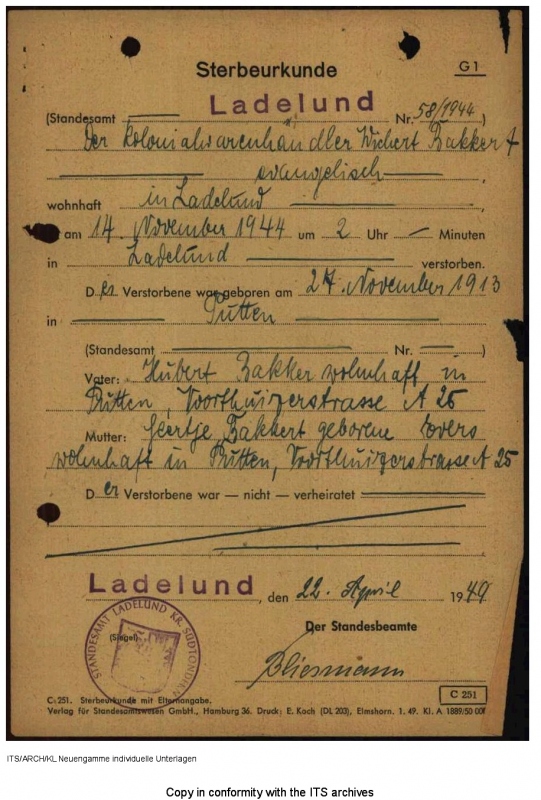 Sterbeurkunde
G 1
(Standesamt Ladelund Nr. 58/1944)
Der Kolonialwarenhändler Wichert Bakker
evangelisch
wohnhaft in Ladelund
ist am 14. November 1944 um 2 Uhr — Minuten
in Ladelund verstorben.
Der Verstorbene war geboren am 27. November 1913
in Putten
(Standesamt Nr. — )
Vater: Hubert Bakker wohnhaft in
Putten, Voorthuizerstrasse A 25
Mutter: Geertje Bakkert geborene Evers
wohnhaft in Putten, Voorthuizerstrasse A 25
Der Verstorbene war — nicht — verheiratet
Ladelund, den 22. April 1949
STANDESAMT LADELUND KR. SÜDTONDERN
(Siegel)
Der Standesbeamte
C 251
C 251. Sterbeurkunde mit Elternangabe.
Verlag für Standesamtswesen GmbH., Hamburg 36. Druck: E. Koch (DL 203), Elmshorn. 1. 49. Kl. A 1889/50 000
ITS/ARCH/KL Neuengamme individuelle Unterlagen
Copy in conformity with the ITS archives